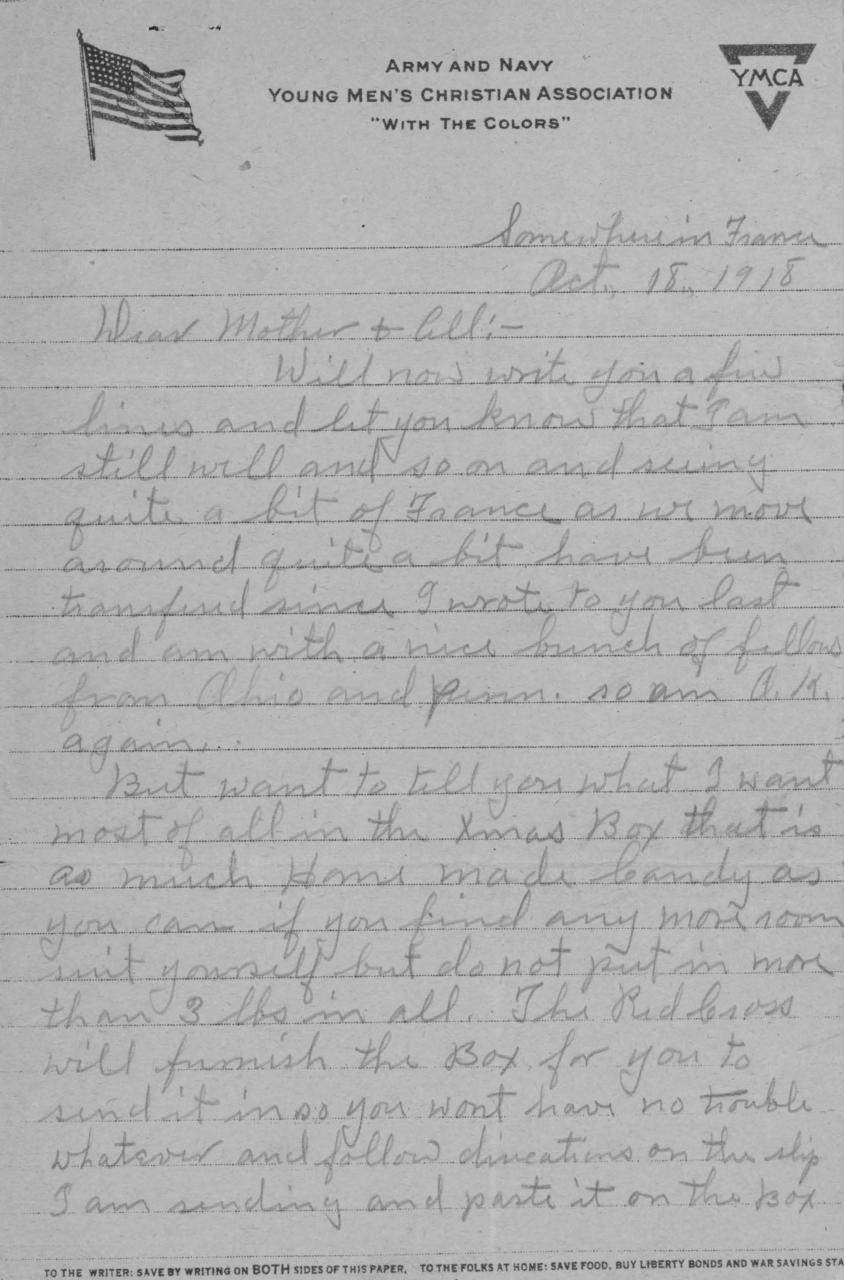 ARMY AND NAVY
YOUNG MEN'S CHRISTIAN ASSOCIATION
"WITH THE COLORS"
YMCA
Somewhere in France
Oct., 18., 1918
Dear Mother & All:-
Will now write you a few
lines and let you know that I am
still well and so on and seeing
quite a bit of France as we move
around quite a bit have been
transfered since I wrote to you last
and am with a nice bunch of fellows
from Ohio and Penn. so am O.K.
again...
But want to tell you what I want
most of all in the Xmas Box that is
as much Home made Candy as
you can if you find any more room
suit yourself but do not put in more
than 3 lbs in all. The Red Cross
will furnish the Box for you to
send it in so you wont have no trouble
whatever and follow direcations on the slip
I am sending and paste it on the Box
TO THE WRITER: SAVE BY WRITING ON BOTH SIDES OF THIS PAPER. TO THE FOLKS AT HOME: SAVE FOOD, BUY LIBERTY BONDS AND WAR SAVINGS STA